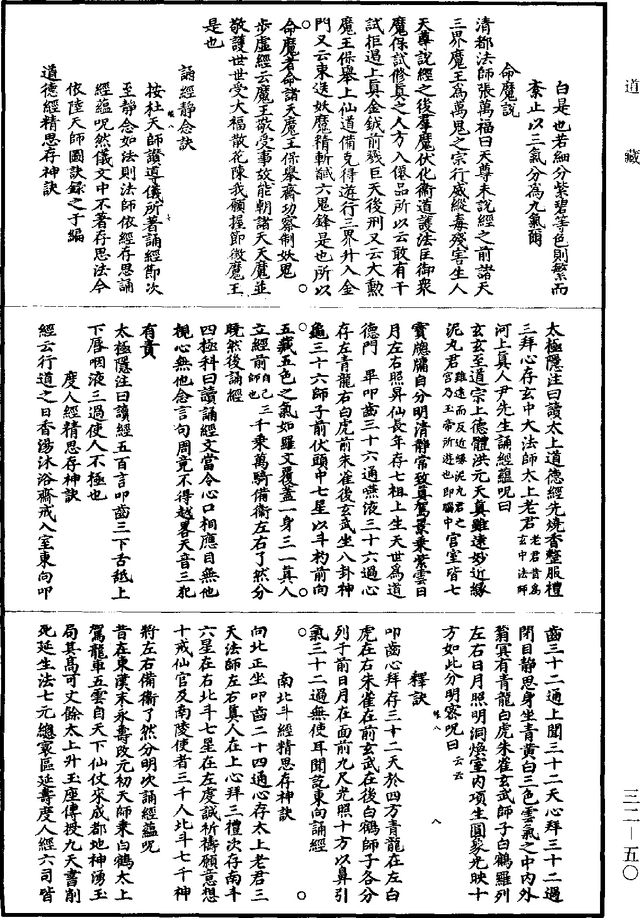 道藏
三二—五〇
白是也若細分紫碧等色則繁而
素止以三氣分為九氣爾
命魔說
清都法師張萬福曰天尊未說經之前諸天
三界魔王為萬鬼之宗行威縱毒殘害生人
天尊說經之後羣魔伏化衛道護法臣御衆
魔保試修真之人方入僊品所以云敢有干
試拒遏上真金鉞前戮巨天後刑又云大勳
魔王保舉上仙道備克得遊行三界升入金
門又云束送妖魔精斬馘六鬼鋒是也所以
命魔者命諸天魔王保舉齋功察制妖鬼
步虛經云魔王敬受事故能朝諸天天魔並
敬護世世受大福散花陳我願握節徵魔王
是也
誦經靜念訣
按杜天師讀導儀所著誦經節次
至靜念如法則法師依經存思誦
經蘊呪然儀文中不著存思法今
依陸天師圖訣錄之于編
道德經精思存神訣
太極隱注曰讀太上道德經先燒香整服禮
三拜心存玄中大法師太上老君老君昔為玄中法師
河上真人尹先生誦經蘊呪曰
玄玄至道宗上德體洪元天真雖遠妙近緣
泥丸君雖遠而反近緣泥丸君之宮乃玉帝所遊也即腦中宮室皆七
寶牕牖自分明清靜常致真駕景乘紫雲日
月左右照昇仙長年存七祖上生天世為道
德門　畢叩齒三十六通嚥液三十六過心
存左青龍右白虎前朱雀後玄武坐八卦神
龜三十六師子前伏頭巾七星以斗杓前向
五藏五色之氣如羅文覆蓋一身三一真人
立經前自己師也三千乘萬騎備衛左右了然分
曉然後誦經
四極科曰讀誦經文當令心口相應目無他
視心無他念言句周竟不得越畧天音三犯
有責
太極隱注曰讀經五百言叩齒三下舌舐上
下唇咽液三過使人不極也
度人經精思存神訣
經云行道之日香湯沐浴齋戒入室東向叩
齒三十二通上聞三十二天心拜三十二過
閉目靜思身坐青黃白三色雲氣之中內外
蓊冥有青龍白虎朱雀玄武師子白鶴羅列
左右日月照明洞煥室內項生圓象光映十
方如此分明密呪曰云云
釋訣
叩齒心拜存三十二天於四方青龍在左白
虎在右朱雀在前玄武在後白鶴師子各分
列于前日月在面前九尺光照十方以鼻引
氣三十二過無使耳聞說東向誦經
南北斗經精思存神訣
向北正坐叩齒二十四通心存太上老君三
天法師左右真人在上心拜三禮次存南斗
六星在右北斗七星在左虔誠祈禱願意想
十戒仙官及南陵使者三千人北斗七千神
將左右備衛了然分明次誦經蘊呪
昔在東漢末永壽改元初天師乘白鶴太上
駕龍車五雲自天下仙仗來成都地神湧玉
局其高可丈餘太上升玉座傳授九天書削
死延生法七元總寰區延壽度人經六司皆